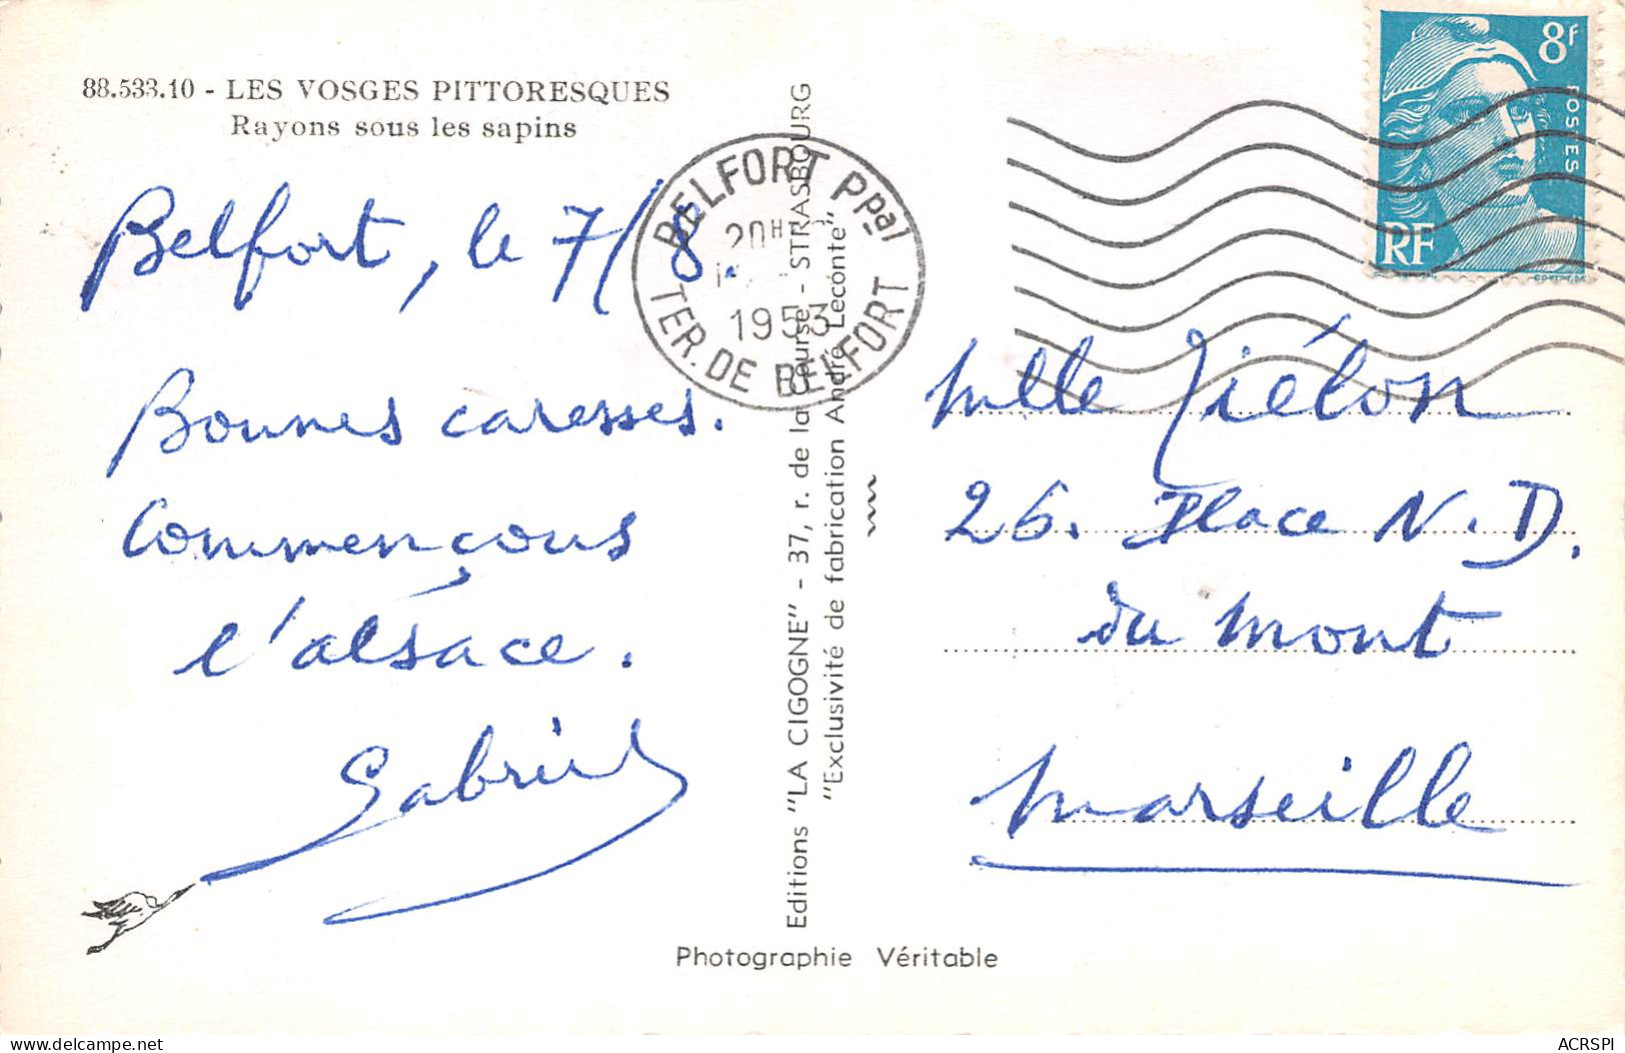 88.533.10 - LES VOSGES PITTORESQUES
Rayons sous les sapins
Belfort, le 7/8.
Bonnes caresses.
Commençons
l'alsace.
Gabriel
BELFORT Ppal
20H
1953
TER. DE BELFORT
Editions "LA CIGOGNE" - 37, r. de la Course - STRASBOURG
"Exclusivité de fabrication André Leconte"
8F
POSTES
RF
Mlle
26. Place N. D.
du Mont
Marseille
Photographie Véritable
delcampe.net
ACRSPI